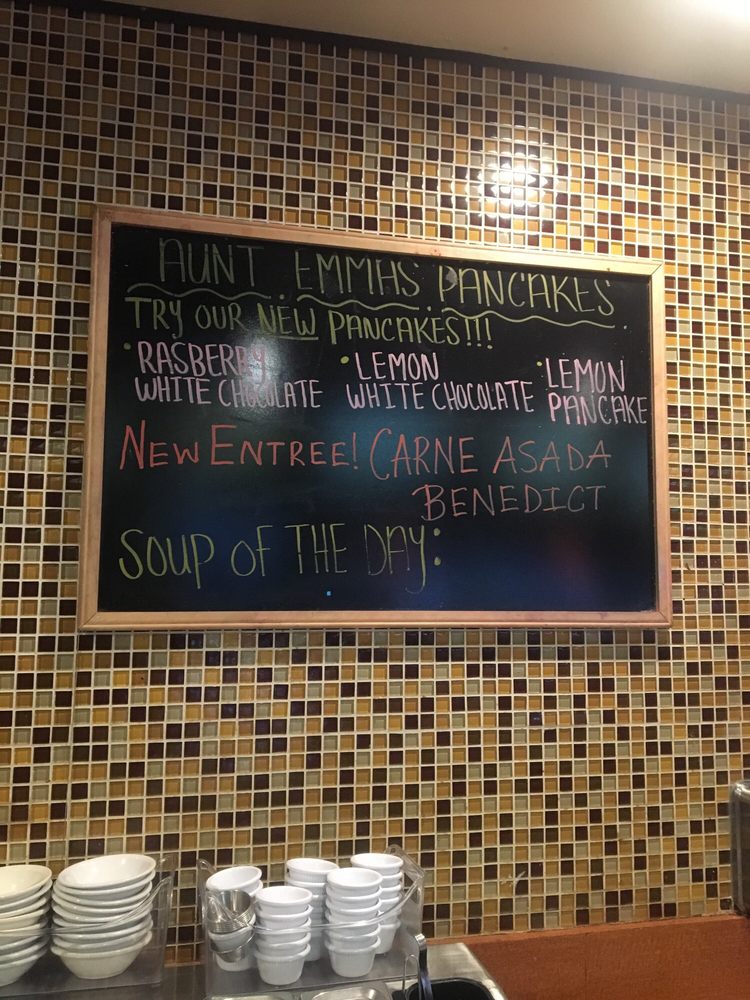 AUNT EMMAS PANCAKES
TRY OUR NEW PANCAKES!!!
• RASBERRY
WHITE CHOCOLATE
• LEMON
WHITE CHOCOLATE
• LEMON
PANCAKE
NEW ENTREE! CARNE ASADA
BENEDICT
SOUP OF THE DAY: